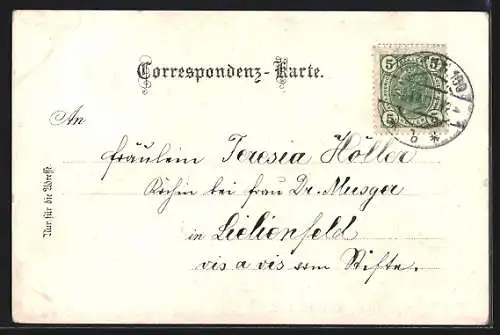 Correspondenz-Karte.
5 5
5 5
An
Fräulein Teresia Höller
Köchin bei Frau Dr. Musger
in Lielienfeld
vis a vis vom Stifte.
Nur für die Adresse.